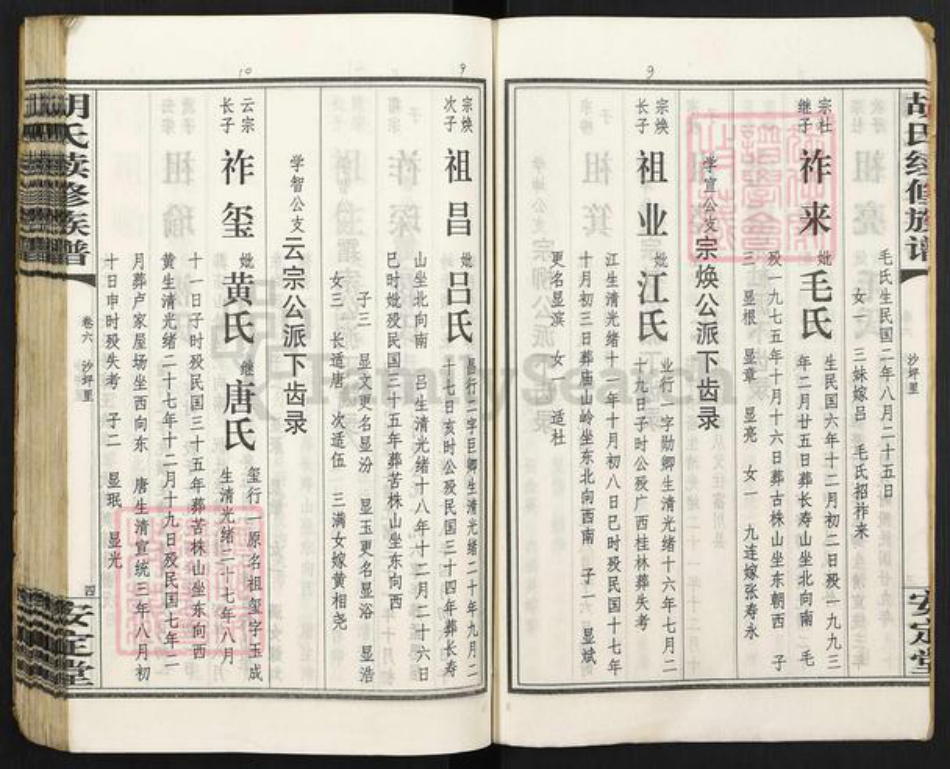 胡氏续修族谱
沙坪里
安定堂
毛氏生民国二年八月二十五日
女一 三妹嫁吕 毛氏招祚来
宗社
继子
祚来
妣毛氏
生民国六年十二月初二日殁一九九三
年二月廿五日葬长寿山坐北向南 毛
殁一九七五年十月十六日葬古株山坐东朝西 子
三 显根 显章 显亮 女一 九连嫁张寿永
学宣公支 宗焕公派下齿录
9
宗焕
长子
祖业
妣江氏
业行一字勋卿生清光绪十六年七月二
十九日子时公殁广西桂林葬失考
江生清光绪十一年十月初八日巳时殁民国十七年
十月初三日葬庙山岭坐东北向西南 子一 显斌
更名显滨 女一 适杜
9
宗焕
次子
祖昌
妣吕氏
昌行二字巨卿生清光绪二十年九月二
十七日亥时公殁民国三十四年葬长寿
山坐北向南 吕生清光绪十八年十二月二十六日
巳时妣殁民国三十五年葬苦株山坐东向西
子三 显文更名显汾 显玉更名显浴 显浩
女三 长适唐 次适伍 三满女嫁黄相尧
学智公支 云宗公派下齿录
10
云宗
长子
祚玺
妣黄氏 继唐氏
玺行一原名祖玺字玉成
生清光绪二十七年八月
十一日子时殁民国三十五年葬苦株山坐东向西
黄生清光绪二十七年十二月十九日殁民国七年二
月葬卢家屋场坐西向东 唐生清宣统三年八月初
十日申时殁失考 子二 显珉 显光
胡氏续修族谱
卷六 沙坪里
四
安定堂
FamilySearch